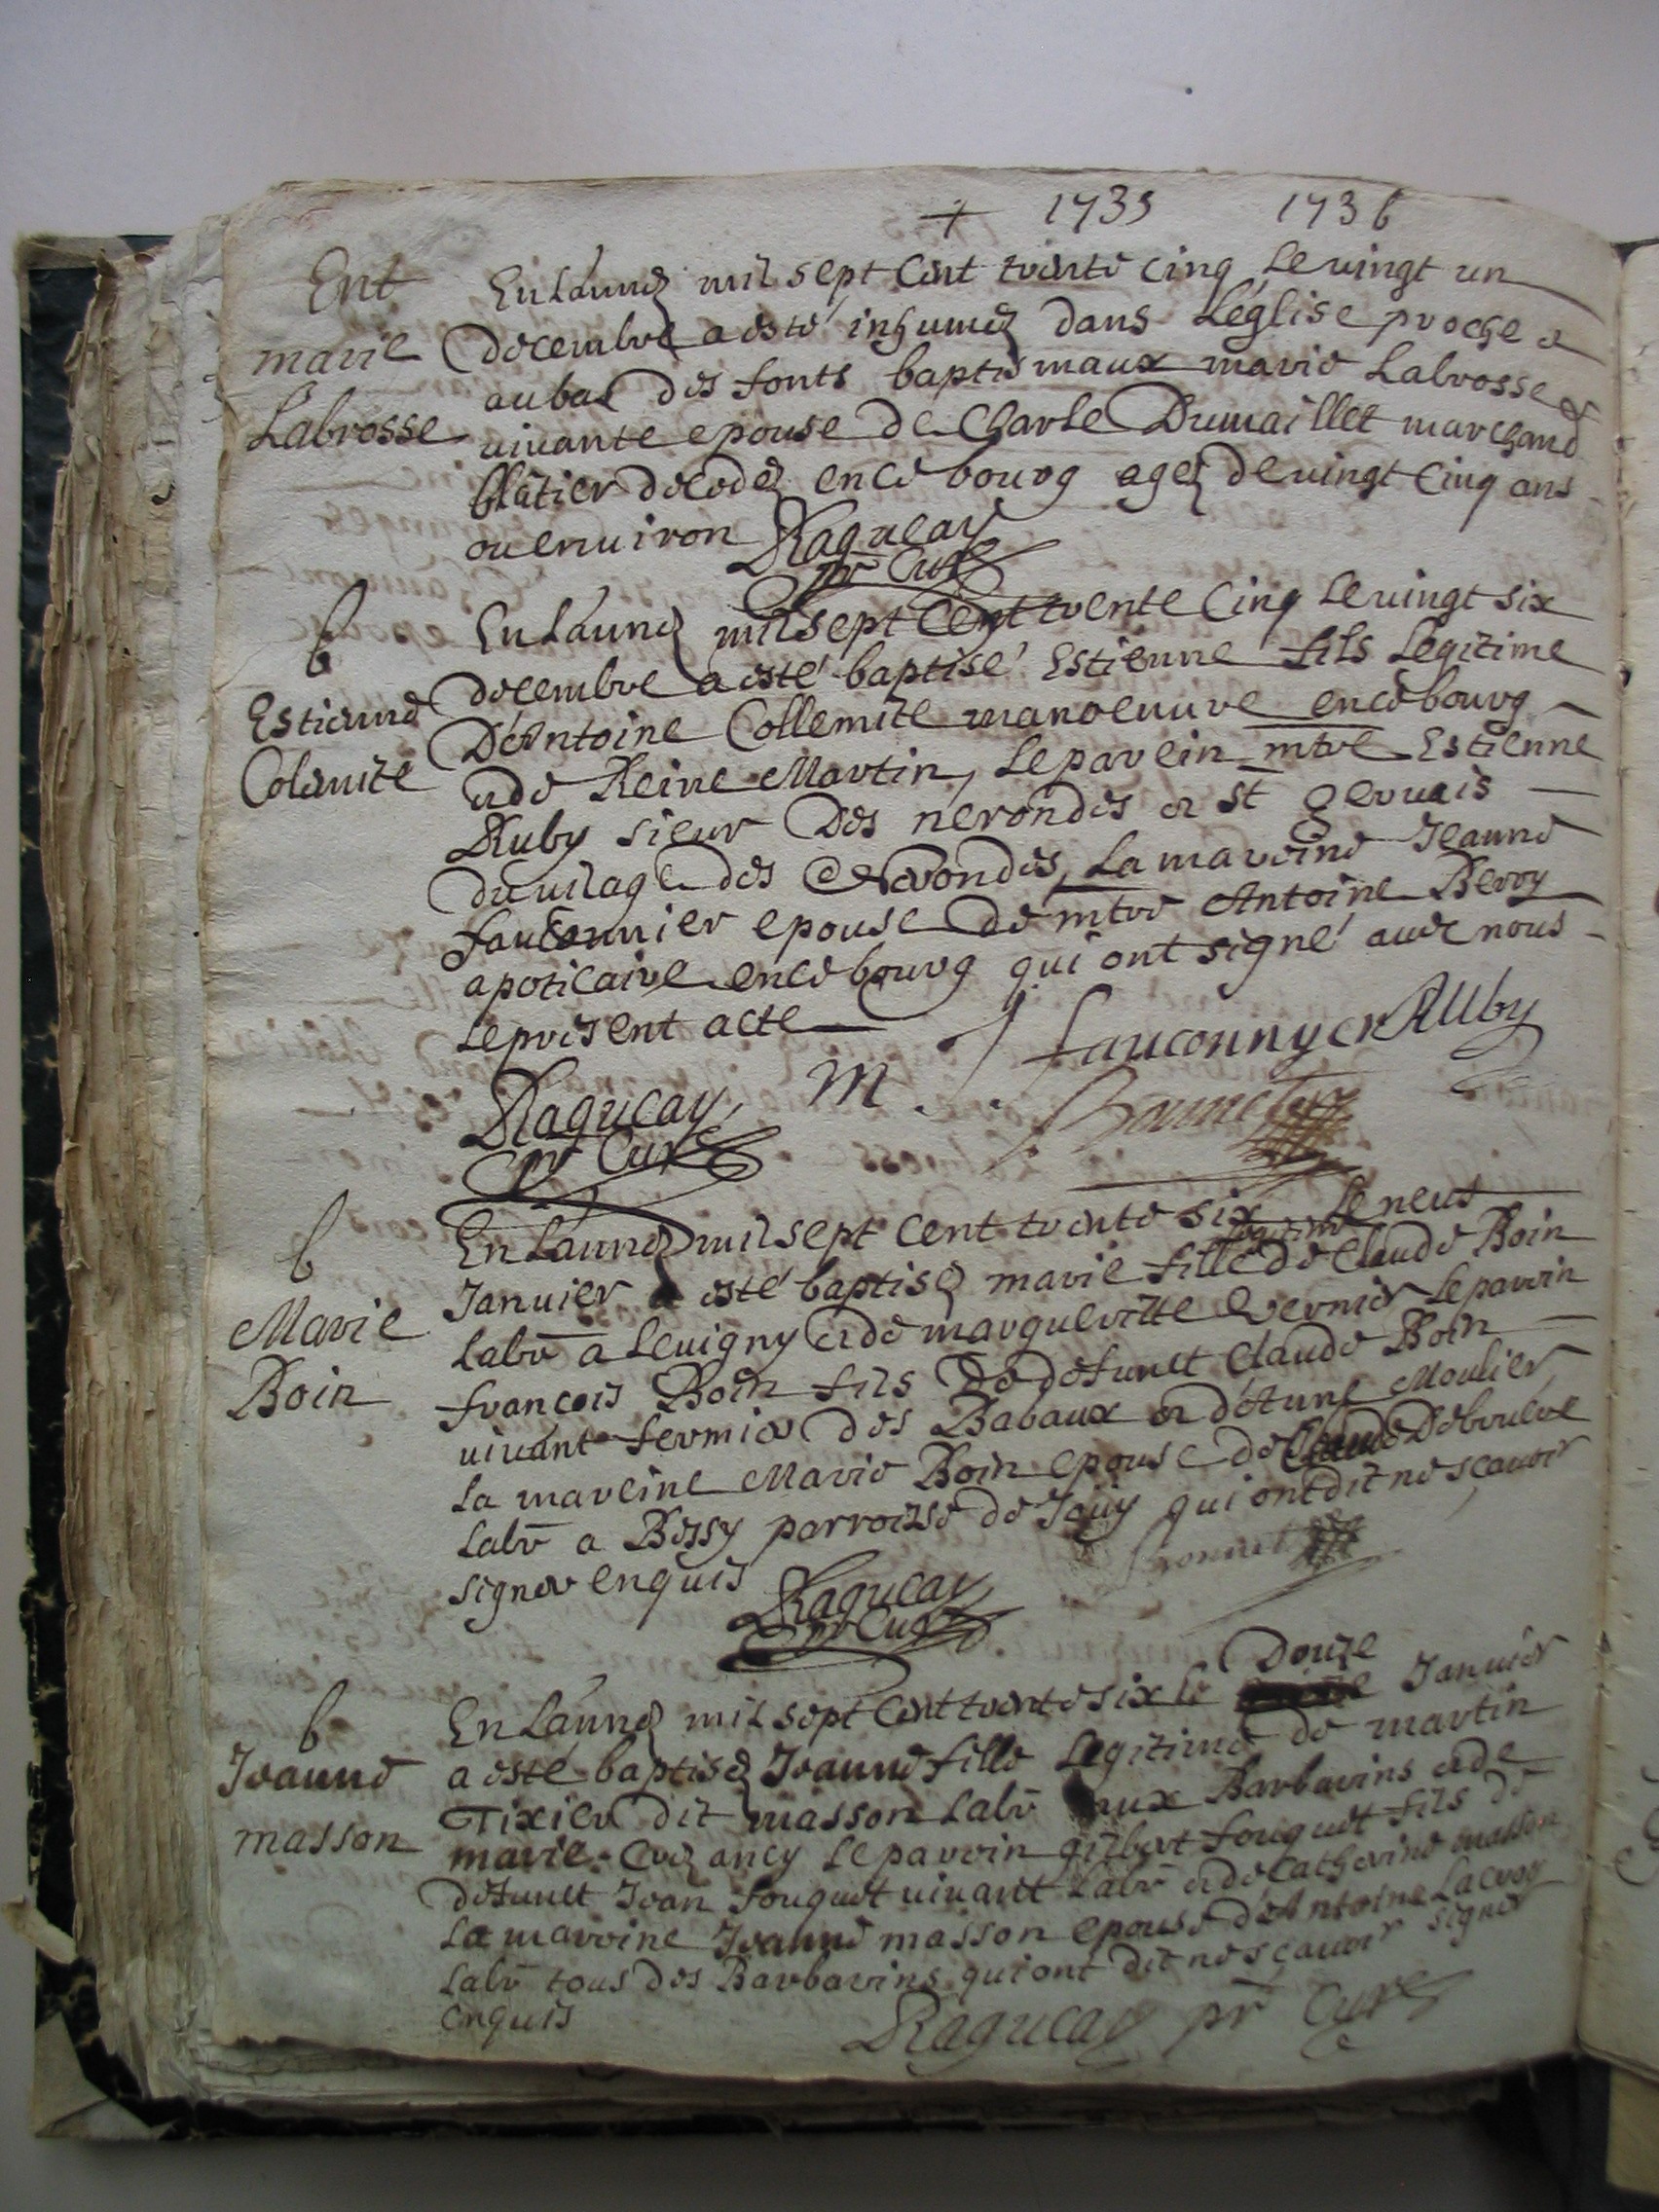 + 1735 1736
Ent
marie
Labrosse
En Lanneé mil sept Cent trente cinq Le vingt un
decembre a esté inhumeé dans Léglise proche et
au bas des fonts baptismaux marie Labrosse
vivante epouse de Charle Dumaillet marchand
blâtier decedeé en ce bourg ageé de vingt Cinq ans
ou environ Ragueau
pr Curé
b
Estienne
Colemite
En Lanneé mil sept Cent trente Cinq Le vingt six
decembre a esté baptisé Estienne fils Legitime
D'Antoine Collemite manoeuvre en ce bourg
et de Reine Martin, Le parein mtre Estienne
Ruby sieur Des nerondes et st gervais
du vilage des Nerondes, La mareine Jeanne
fauconnier epouse de mtre Antoine Beroy
apoticaire en ce bourg qui ont signé avec nous
Le present acte
J fauconnyer Ruby
Ragueau m
pr Curé
b
Marie
Boin
En Lanneé mil sept cent trente six Le neuf
legitime
Janvier a esté baptiseé marie fille de Claude Boin
Labr a Levigny et de margueritte Vernier Le parrin
françois Boin fils De defunct Claude Boin
vivant fermier des Babaux et détune Moulier
La mareine Marie Boin epouse de Claude Deboulve
Labr a Bessy parroisse de Joüy qui ont dit ne scavoir
signer enquis
Ragueau
pr Curé
b
Jeanne
masson
Douze
En Lanneé mil sept Cent trente six le Janvier
a esté baptiseé Jeanne fille Legitime de martin
Tixier dit masson Labr aux Barbarins et de
marie Crozancy Le parrin gilbert fouquet fils de
defunct Jean fouquet vivant Labr et de Catherine masson
La marrine Jeanne masson epouse d'Antoine Lacroy
Labr tous des Barbarins qui ont dit ne scavoir signer
enquis
Ragueau pr Curé